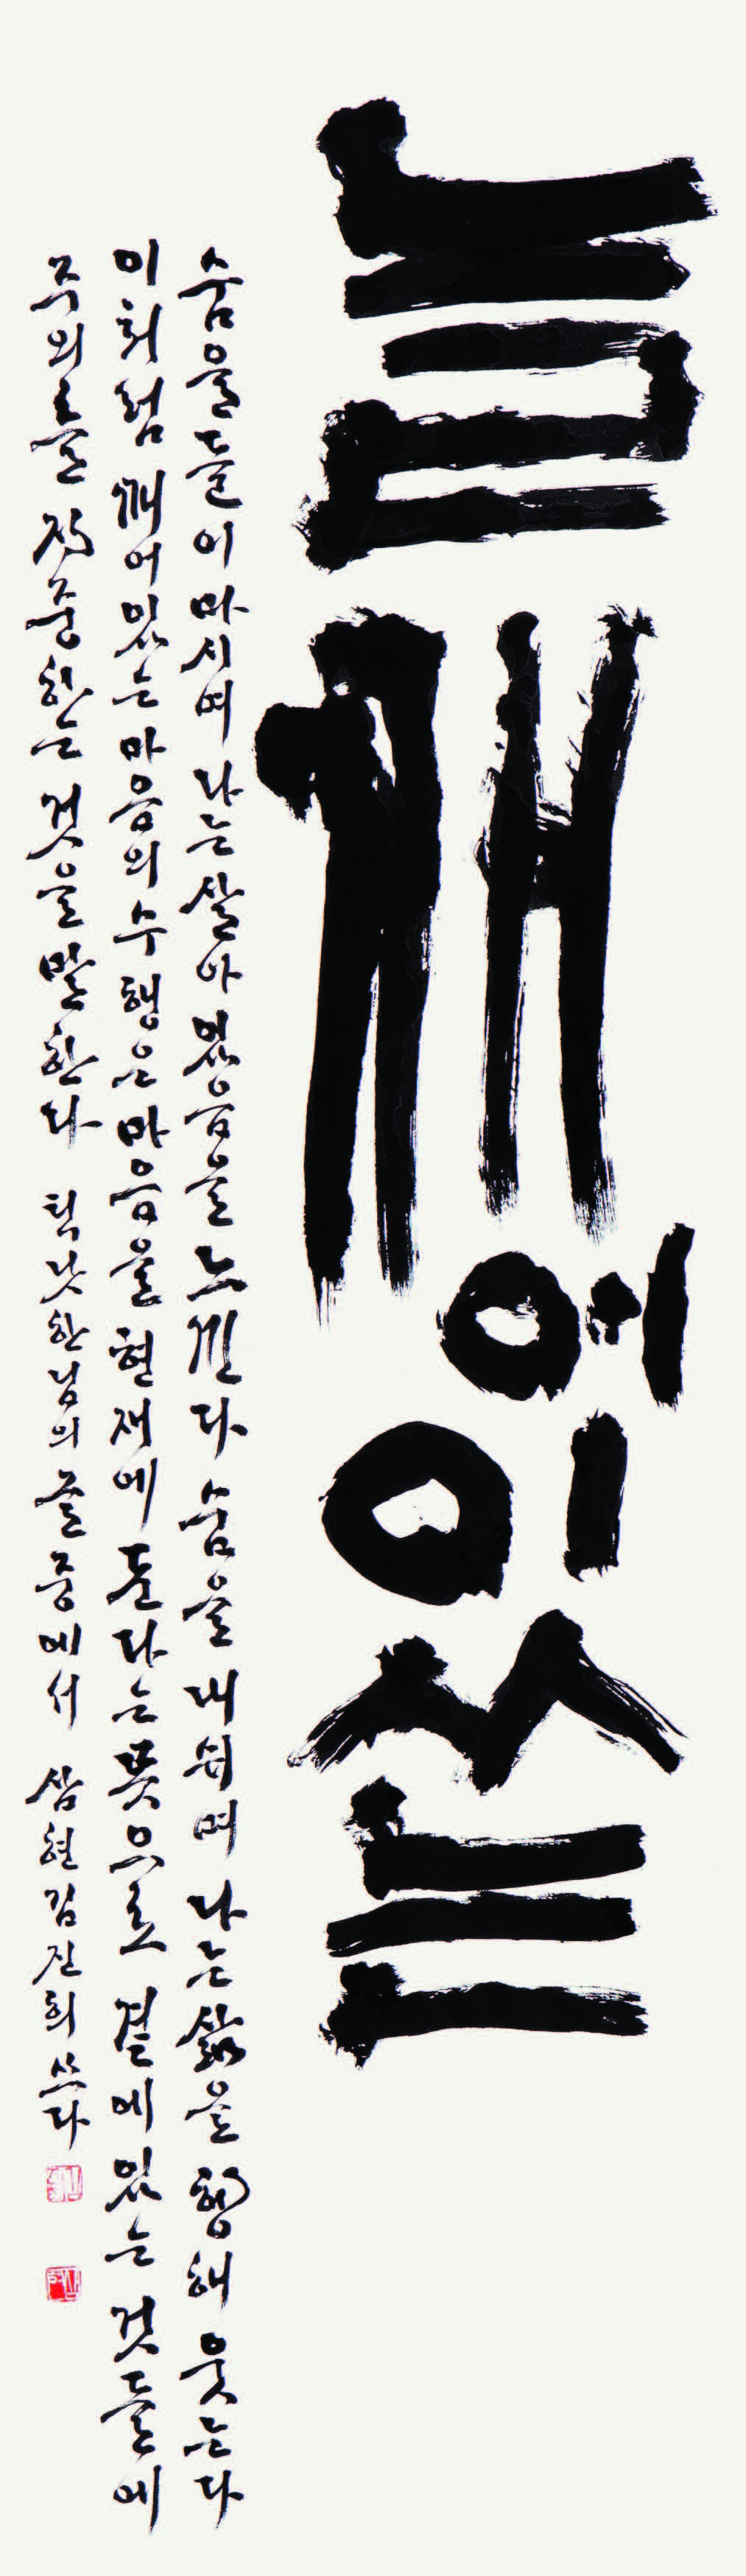 늘 깨어있는
숨을 들이마시며 나는 살아있음을 느낀다 숨을 내쉬며 나는 삶을 향해 웃는다
이처럼 깨어있는 마음의 수행은 마음을 현재에 둔다는 뜻으로 곁에 있는 것들에
주의를 집중하는 것을 말한다 틱낫한님의 글 중에서 삼현 김진희 쓰다